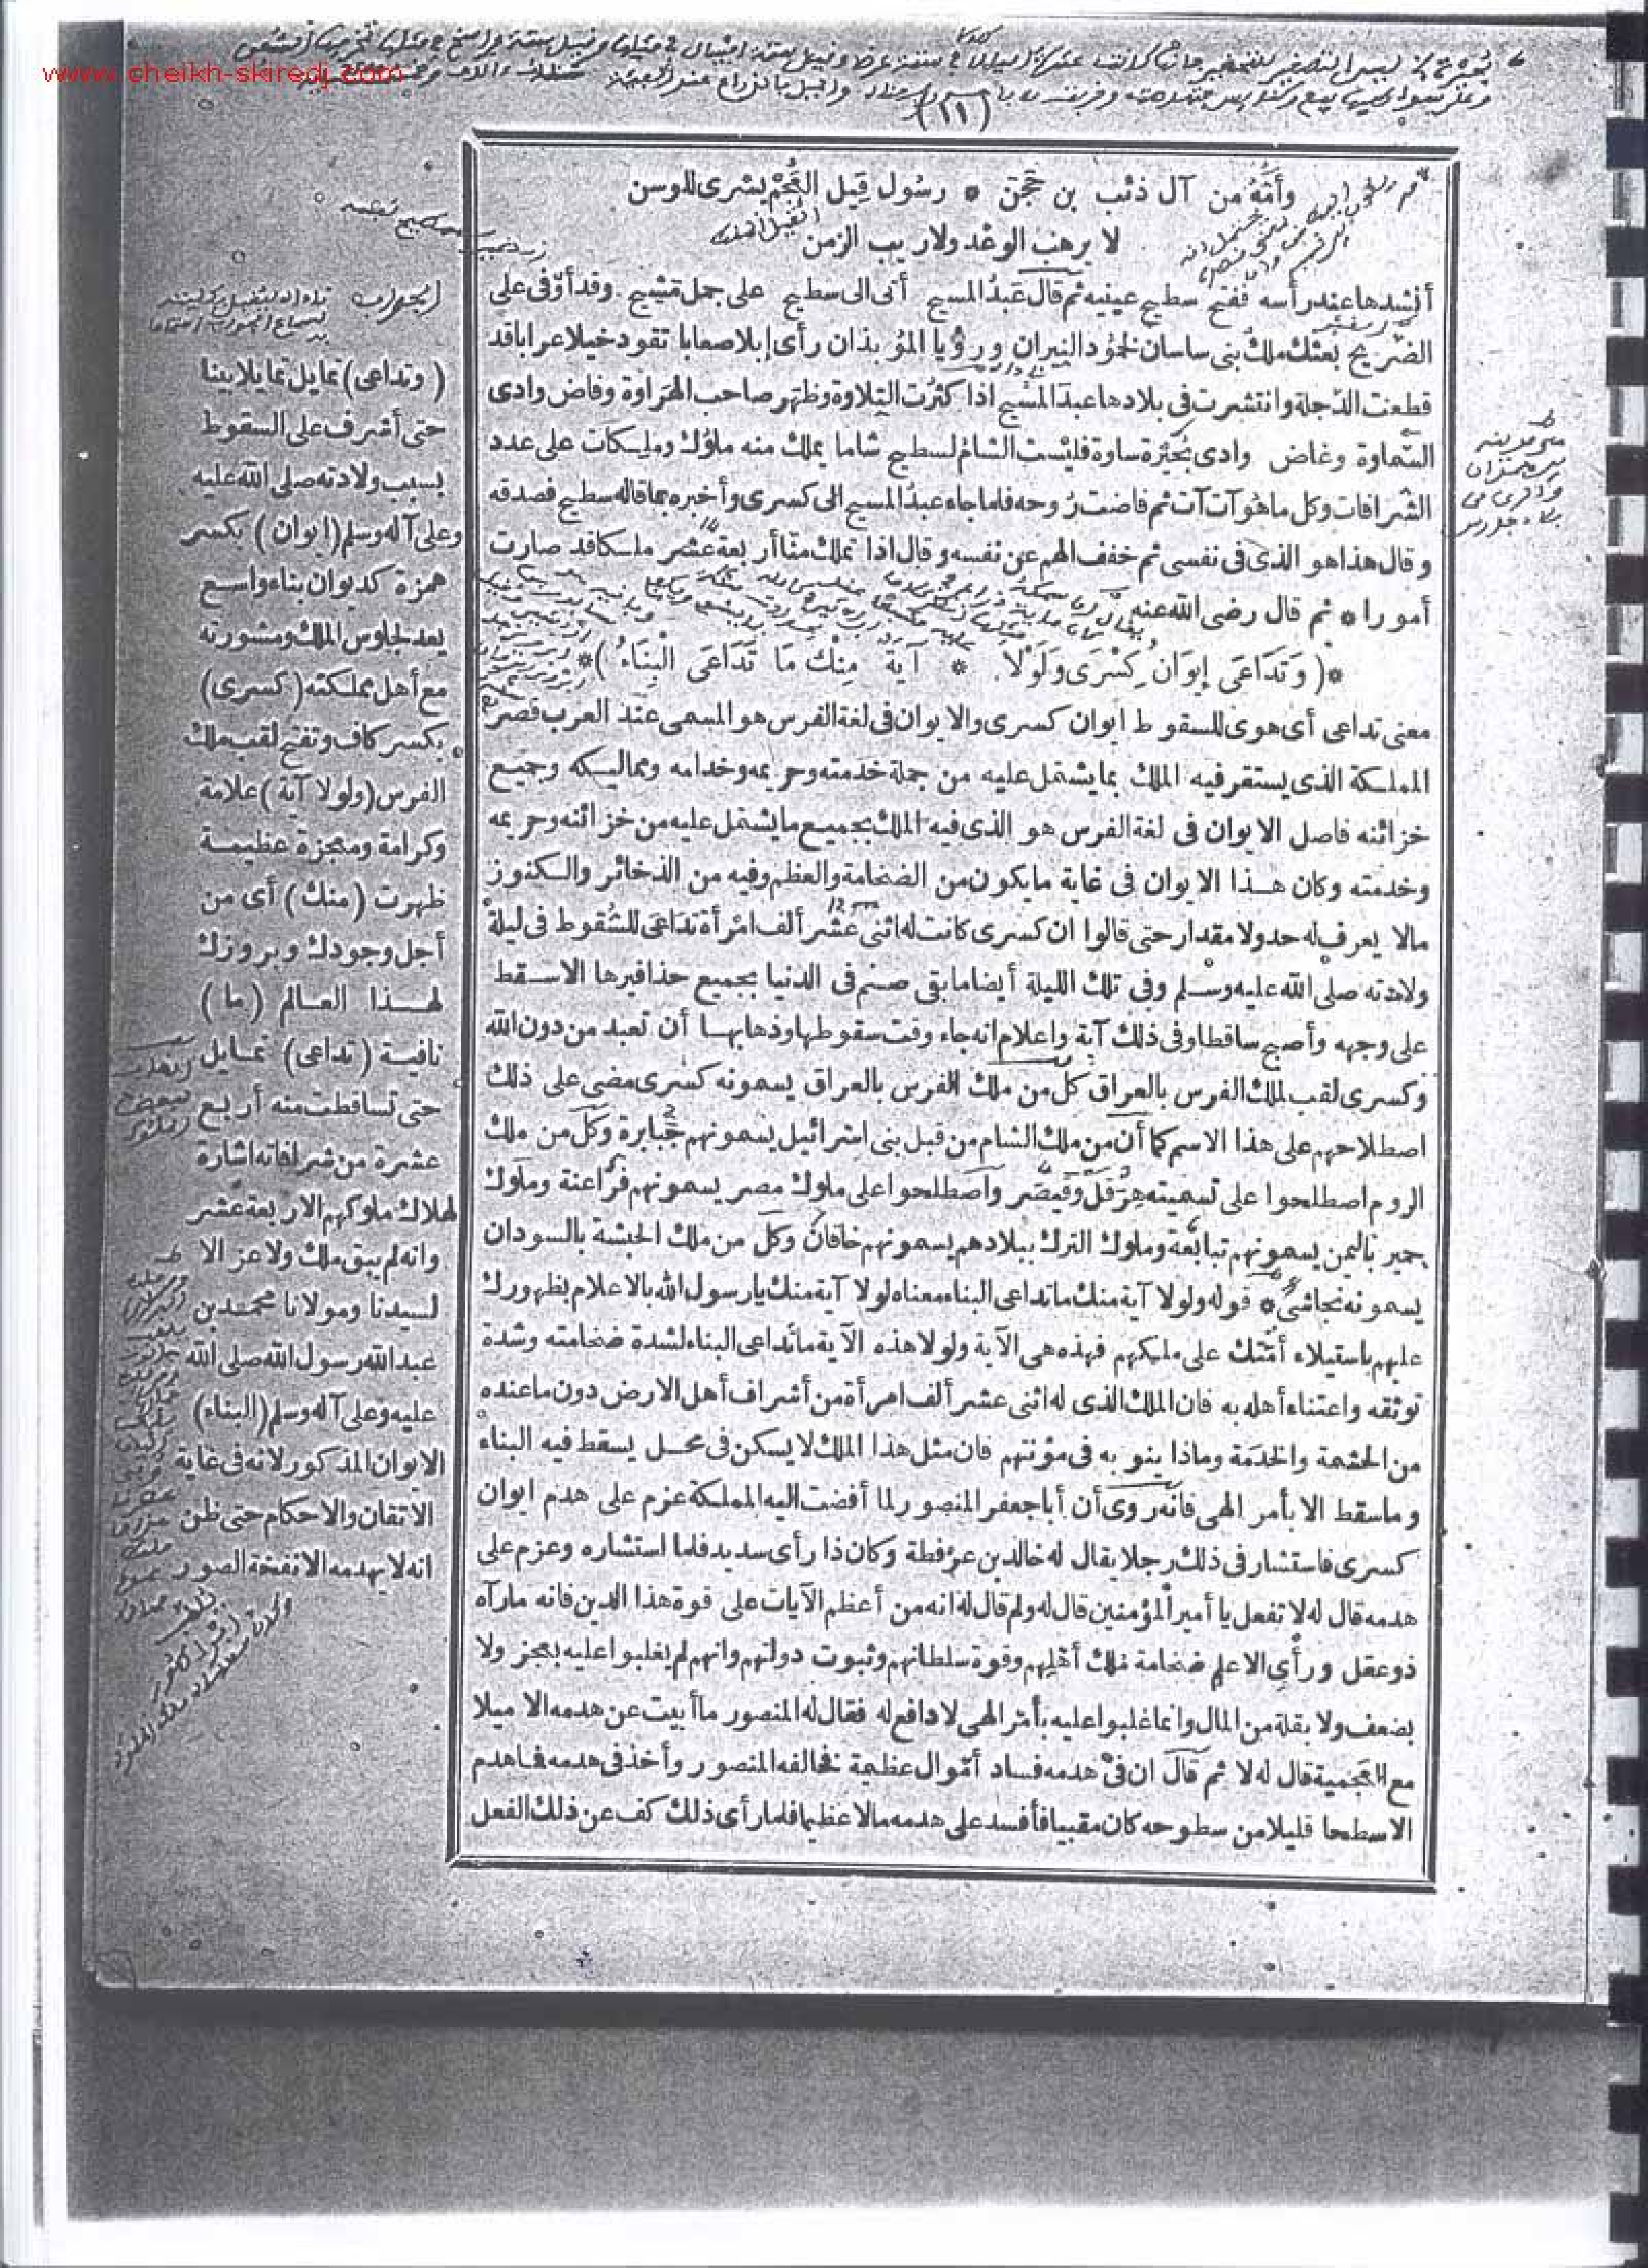 www.cheikh-skiredj.com
(١١)
وأمه من آل ذئب بن حجن * رسول قيل العجم يسرى للوسن
لا يرهب الوغد ولا ريب الزمن
أنشدها عند رأسه ففتح سطيح عينيه ثم قال عبد المسيح أتى الى سطيح على جمل مشيح وقد أوفى على
الضريح بعثك ملك بنى ساسان لخمود النيران ورؤيا الموبذان رأى إبلا صعابا تقود خيلا عرابا قد
قطعت الدجلة وانتشرت فى بلادها عبد المسيح اذا كثرت التلاوة وظهر صاحب الهراوة وفاض وادى
السماوة وغاض وادى بحيرة ساوة فليست الشام لسطيح شاما يملك منه ملوك ومليكات على عدد
الشرافات وكل ما هو آت آت ثم فاضت روحه فلما جاء عبد المسيح الى كسرى وأخبره بما قاله سطيح فصدقه
وقال هذا هو الذى فى نفسى ثم خفف الهم عن نفسه وقال اذا تملك منا أربعة عشر ملكا قد صارت
أمورا * ثم قال رضى الله عنه
*( وَتَدَاعَى إِيوَانُ كِسْرَى وَلَوْلَا * آيَةٌ مِنْكَ مَا تَدَاعَى الْبِنَاءُ )*
معنى تداعى أى هوى للسقوط ايوان كسرى والايوان فى لغة الفرس هو المسمى عند العرب قصر
المملكة الذى يستقر فيه الملك بما يشتمل عليه من جملة خدمته وحريمه وخدامه ومماليكه وجميع
خزائنه فاصل الايوان فى لغة الفرس هو الذى فيه الملك بجميع ما يشتمل عليه من خزائنه وحريمه
وخدمته وكان هذا الايوان فى غاية ما يكون من الضخامة والعظم وفيه من الذخائر والكنوز
مالا يعرف له حد ولا مقدار حتى قالوا ان كسرى كانت له اثنى عشر ألف امرأة تداعى للسقوط فى ليلة
ولادته صلى الله عليه وسلم وفى تلك الليلة أيضا ما بقى صنم فى الدنيا بجميع حذافيرها الا سقط
على وجهه وأصبح ساقطا وفى ذلك آية واعلام انه جاء وقت سقوطها وذهابها أن تعبد من دون الله
وكسرى لقب لملك الفرس بالعراق كل من ملك الفرس بالعراق يسمونه كسرى مضى على ذلك
اصطلاحهم على هذا الاسم كما أن من ملك الشام من قبل بنى اسرائيل يسمونهم جبابرة وكل من ملك
الروم اصطلحوا على تسميته هرقل وقيصر واصطلحوا على ملوك مصر يسمونهم فراعنة وملوك
حمير باليمن يسمونهم تبابعة وملوك الترك ببلادهم يسمونهم خاقان وكل من ملك الحبشة بالسودان
يسمونه نجاشى * قوله ولولا آية منك ما تداعى البناء معناه لولا آية منك يارسول الله بالاعلام بظهورك
عليهم باستيلاء أمتك على مليكهم فهذه هى الآية ولولا هذه الآية ما تداعى البناء لشدة ضخامته وشدة
توثقه واعتناء أهله به فان الملك الذى له اثنى عشر ألف امرأة من أشراف أهل الارض دون ما عنده
من الحشمة والخدمة وماذا ينوبه فى مؤنتهم فان مثل هذا الملك لا يسكن فى محل يسقط فيه البناء
وما سقط الا بأمر الهى فانه روى أن أبا جعفر المنصور لما أفضت اليه المملكة عزم على هدم ايوان
كسرى فاستشار فى ذلك رجلا يقال له خالد بن عرفطة وكان ذا رأى سديد فلما استشاره وعزم على
هدمه قال له لا تفعل يا أمير المؤمنين قال له ولم قال له انه من أعظم الآيات على قوة هذا الدين فانه ما رآه
ذو عقل ورأى الا علم ضخامة ملك أهلهم وقوة سلطانهم وثبوت دولتهم وانهم لم يغلبوا عليه بعجز ولا
بضعف ولا بقلة من المال وانما غلبوا عليه بأمر الهى لا دافع له فقال له المنصور ما أبيت عن هدمه الا ميلا
مع العجمية قال له لا ثم قال ان فى هدمه فساد أموال عظيمة فخالفه المنصور وأخذ فى هدمه فما هدم
الا سطحا قليلا من سطوحه كان مقبيا فأفسد على هدمه مالا عظيما فلما رأى ذلك كف عن ذلك الفعل
( وتداعى) تمايل تمايلا بينا
حتى أشرف على السقوط
بسبب ولادته صلى الله عليه
وعلى آله وسلم (ايوان ) بكسر
همزة كديوان بناء واسع
يعد لجلوس الملك ومشورته
مع أهل مملكته (كسرى)
بكسر كاف وتفتح لقب ملك
الفرس (ولولا آية ) علامة
وكرامة ومعجزة عظيمة
ظهرت (منك) أى من
أجل وجودك وبروزك
لهذا العالم (ما )
نافية (تداعى) تمايل
حتى تساقطت منه أربع
عشرة من شرافاته اشارة
لهلاك ملوكهم الاربعة عشر
وانه لم يبق ملك ولا عز الا
لسيدنا ومولانا محمد بن
عبد الله رسول الله صلى الله
عليه وعلى آله وسلم (البناء)
الايوان المذكور لانه فى غاية
الاتقان والاحكام حتى ظن
انه لا يهدمه الا نفخة الصور